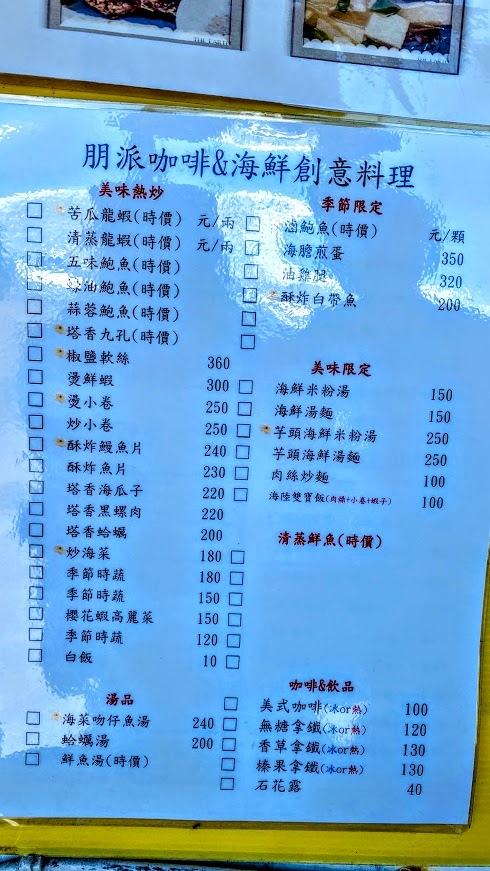 朋派咖啡&海鮮創意料理
美味熱炒
苦瓜龍蝦(時價) 元/兩
清蒸龍蝦(時價) 元/兩
五味鮑魚(時價)
油鮑魚(時價)
蒜蓉鮑魚(時價)
塔香九孔(時價)
椒鹽軟絲 360
燙鮮蝦 300
燙小卷 250
炒小卷 250
酥炸鰻魚片 240
酥炸魚片 230
塔香海瓜子 220
塔香黑螺肉 220
塔香蛤蠣 200
炒海菜 180
季節時蔬 180
季節時蔬 150
櫻花蝦高麗菜 150
季節時蔬 120
白飯 10
湯品
海菜吻仔魚湯 240
蛤蠣湯 200
鮮魚湯(時價)
季節限定
滷鮑魚(時價) 元/顆
海膽煎蛋 350
油雞腿 320
酥炸白帶魚 200
美味限定
海鮮米粉湯 150
海鮮湯麵 150
芋頭海鮮米粉湯 250
芋頭海鮮湯麵 250
肉絲炒麵 100
海陸雙寶飯(肉燥+小卷+蝦子) 100
清蒸鮮魚(時價)
咖啡&飲品
美式咖啡(冰or熱) 100
無糖拿鐵(冰or熱) 120
香草拿鐵(冰or熱) 130
榛果拿鐵(冰or熱) 130
石花露 40